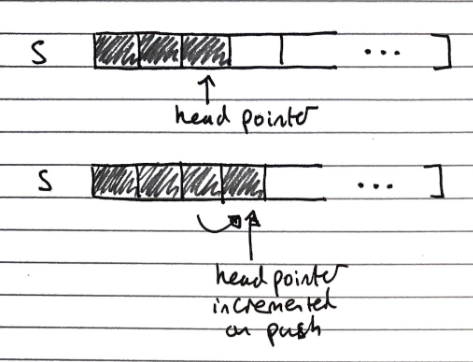 S ...]
head pointer
S ...]
head pointer
incremented
on push